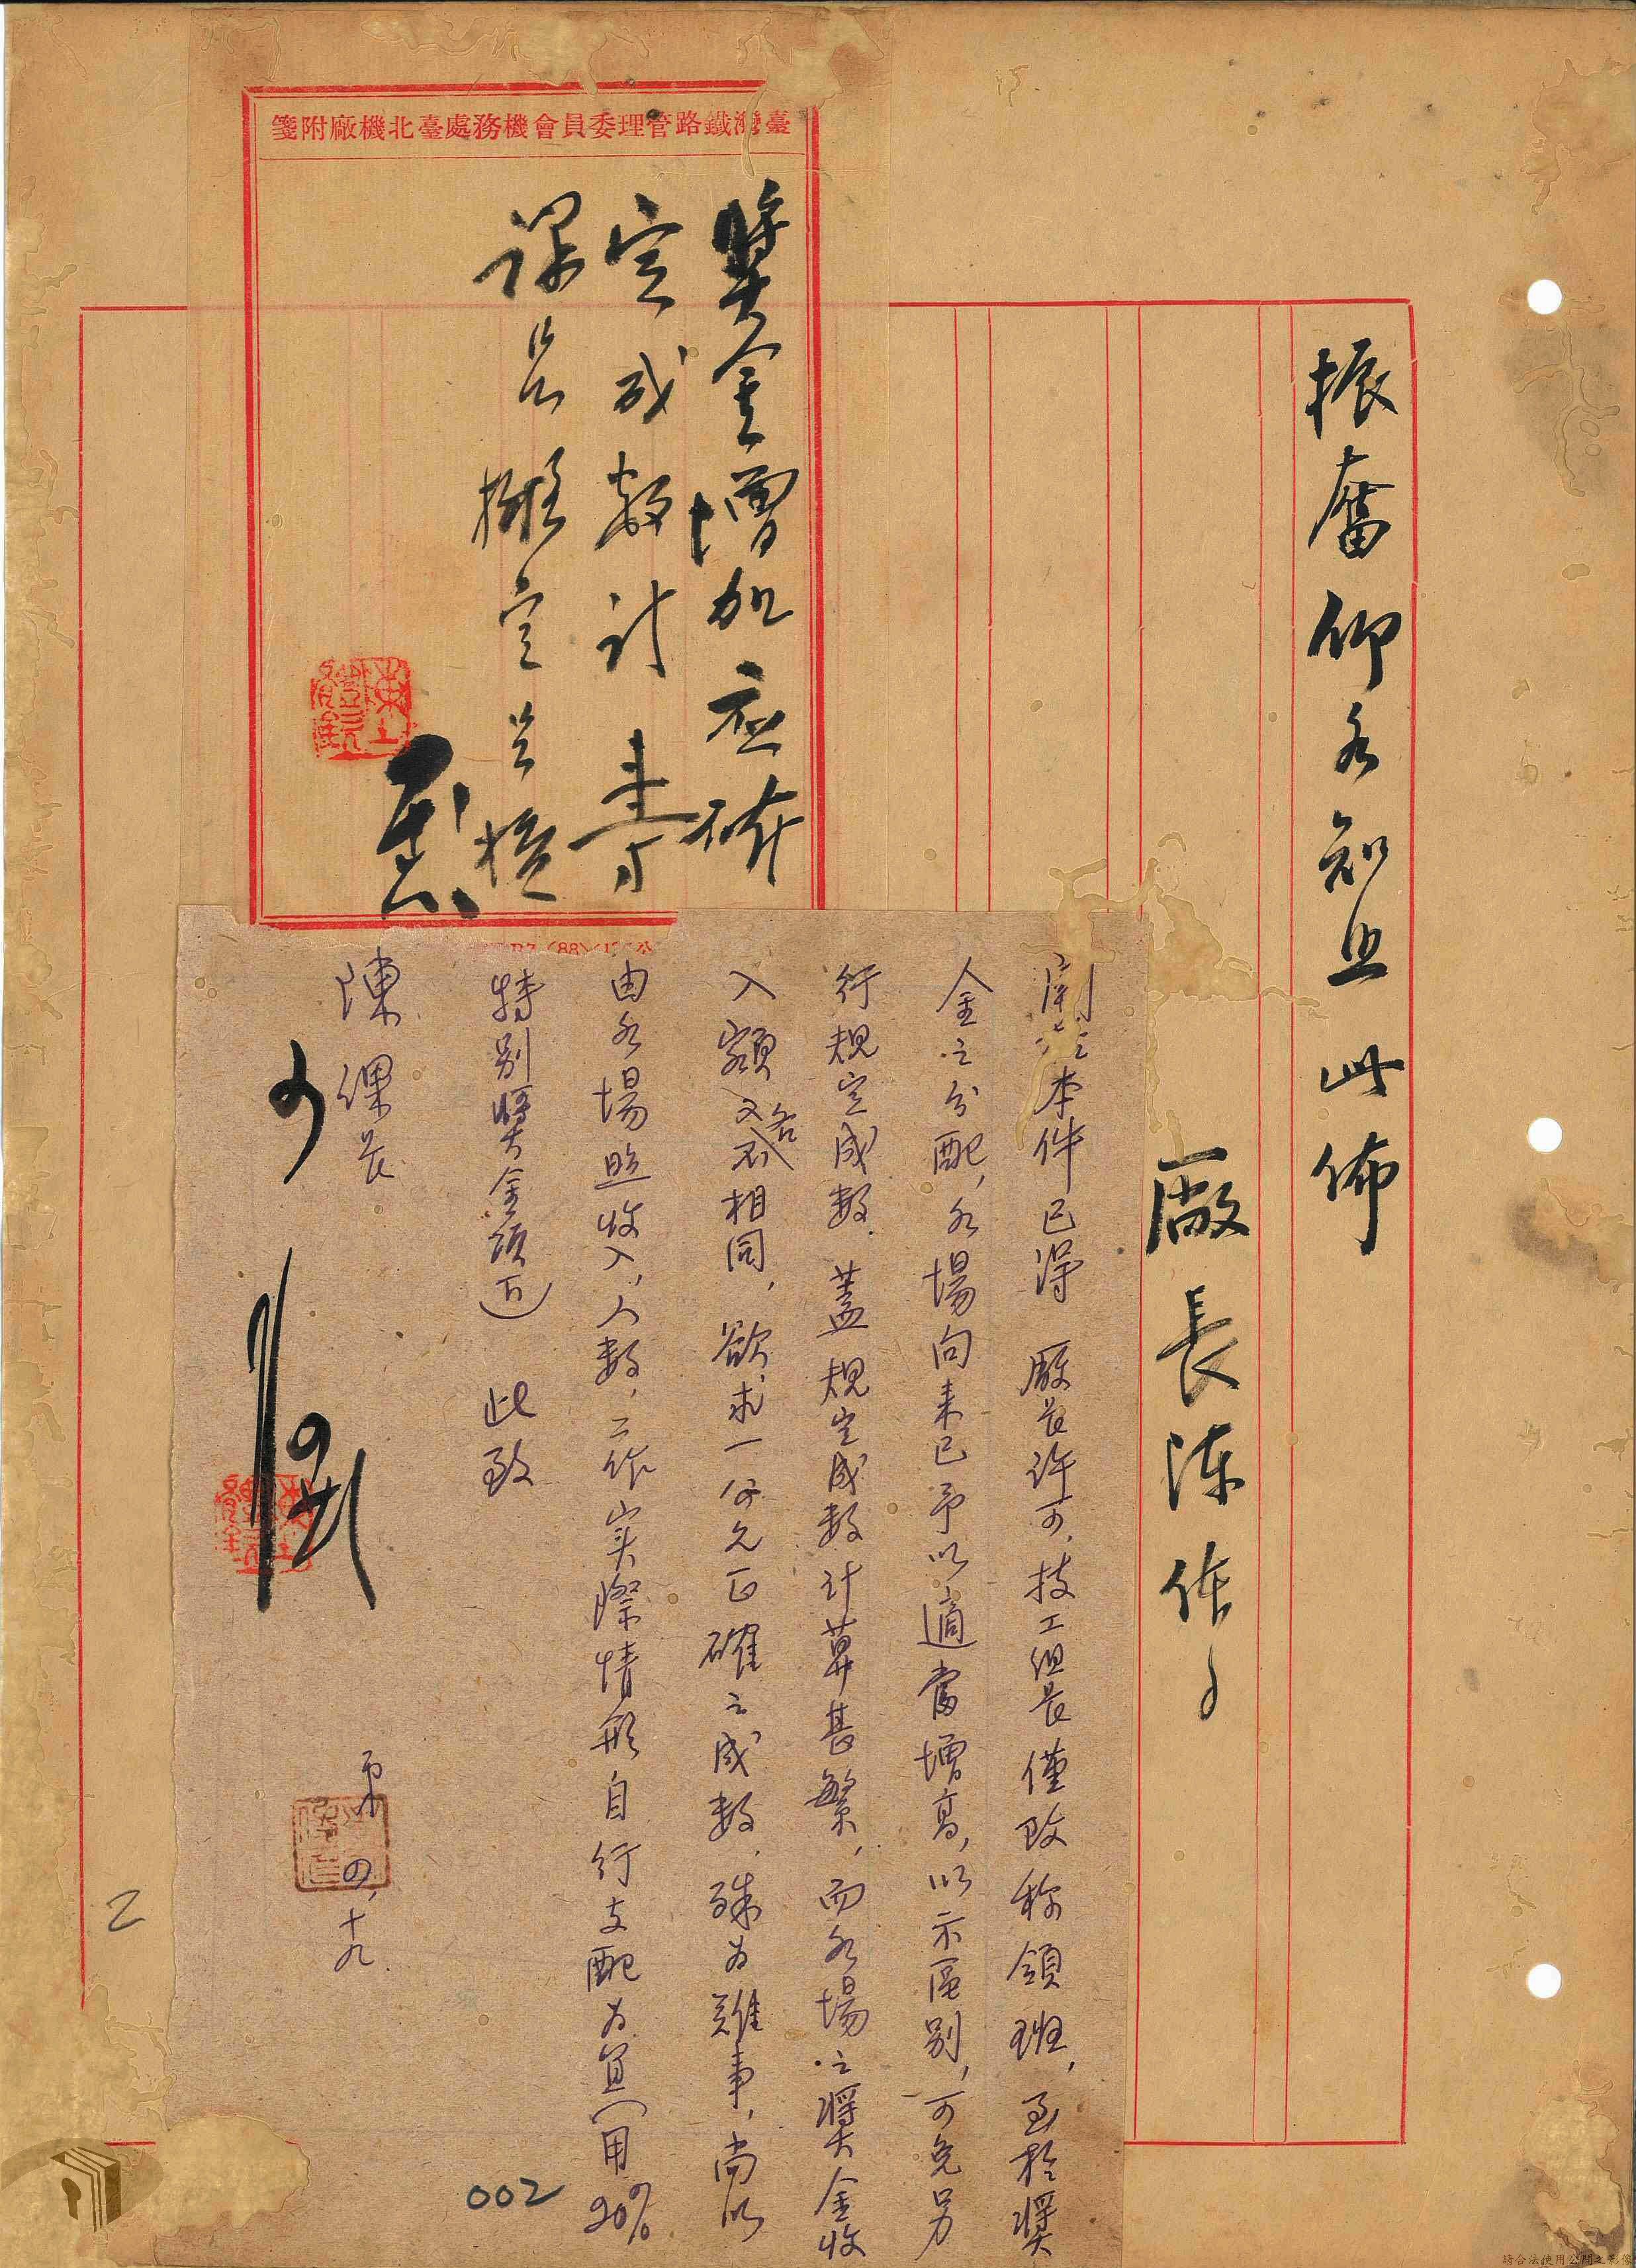 振奮仰各知照此佈
廠長陳
臺灣鐵路管理委員會機務處臺北機廠附箋
獎金增加應確
定成數計專
課長擬定呈核
關於本件已得 廠長許可，技工組長僅改称領班，至於獎
金之分配，各場向来已予以適當增高，以示區別，可免另
行規定成數．蓋規定成數計算甚繁，而各場之獎金收
入額又各不相同，欲求一公允正確之成數，殊为難事，尚以
由各場照收入，人數，工作实際情形自行支配为宜（用20%
特別獎金項下） 此致
陳課長
四，十九
可
002
乙
請合法使用公開之影像